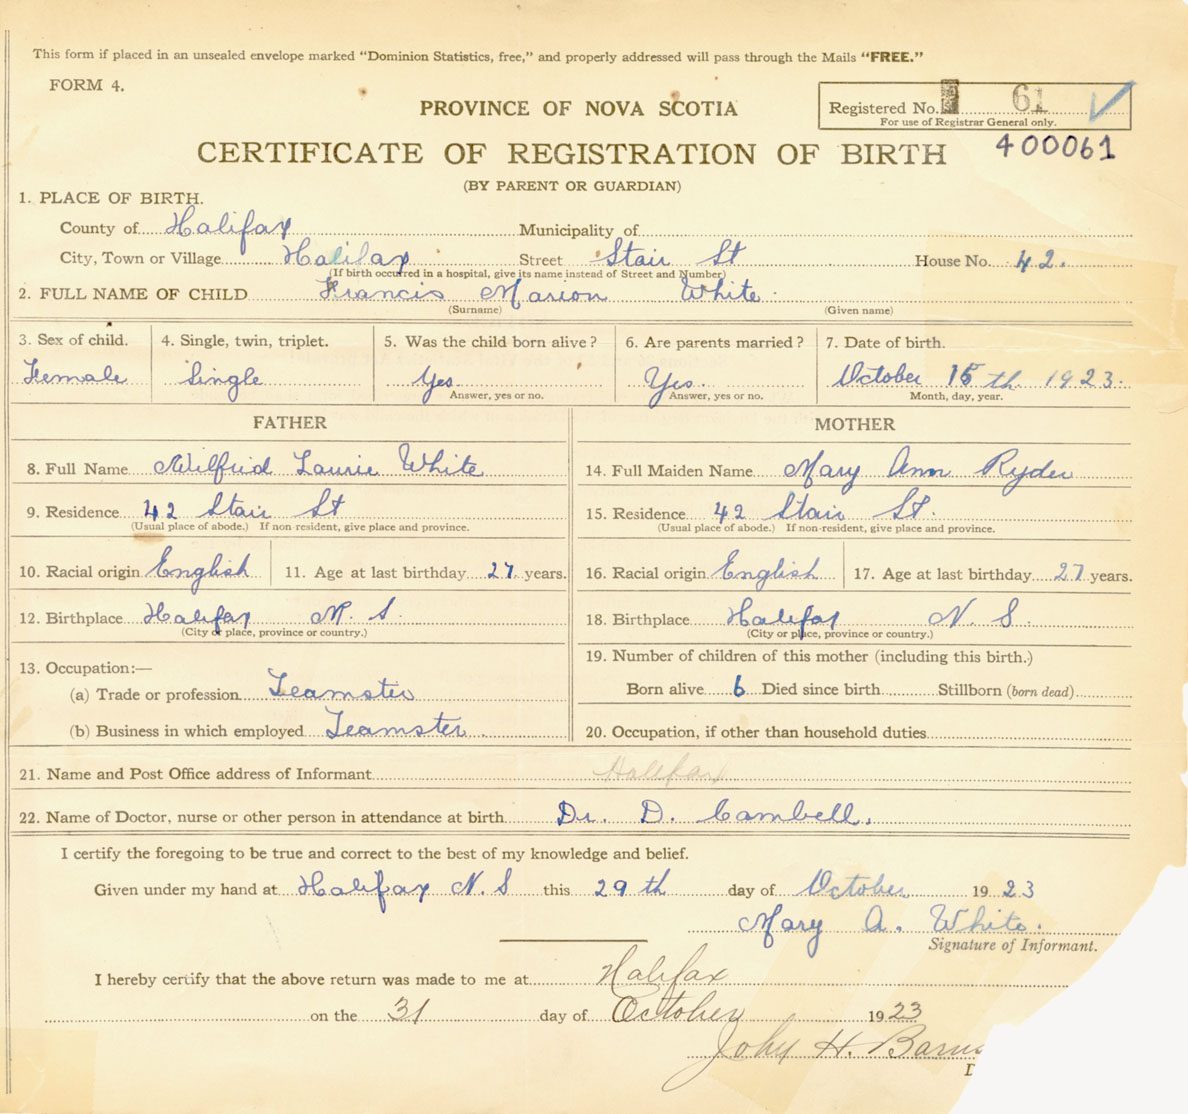 This form if placed in an unsealed envelope marked "Dominion Statistics, free," and properly addressed will pass through the Mails "FREE."
FORM 4.
Registered No. 61
For use of Registrar General only.
PROVINCE OF NOVA SCOTIA
400061
CERTIFICATE OF REGISTRATION OF BIRTH
(BY PARENT OR GUARDIAN)
1. PLACE OF BIRTH.
County of Halifax Municipality of
City, Town or Village Halifax Street Stair St House No. 42.
(If birth occurred in a hospital, give its name instead of Street and Number)
2. FULL NAME OF CHILD Francis Marion White.
(Surname) (Given name)
3. Sex of child. 4. Single, twin, triplet. 5. Was the child born alive? 6. Are parents married? 7. Date of birth.
Female Single Yes Yes. October 15th 1923.
Answer, yes or no. Answer, yes or no. Month, day, year.
FATHER MOTHER
8. Full Name Wilfrid Laurie White 14. Full Maiden Name Mary Ann Ryder
9. Residence 42 Stair St 15. Residence 42 Stair St.
(Usual place of abode.) If non resident, give place and province. (Usual place of abode.) If non-resident, give place and province.
10. Racial origin English 11. Age at last birthday 27 years. 16. Racial origin English 17. Age at last birthday 27 years.
12. Birthplace Halifax N. S. 18. Birthplace Halifax N. S.
(City or place, province or country.) (City or place, province or country.)
13. Occupation:— 19. Number of children of this mother (including this birth.)
(a) Trade or profession Teamster Born alive 6 Died since birth Stillborn (born dead)
(b) Business in which employed Teamster. 20. Occupation, if other than household duties
21. Name and Post Office address of Informant Halifax
22. Name of Doctor, nurse or other person in attendance at birth Dr. D. Cambell.
I certify the foregoing to be true and correct to the best of my knowledge and belief.
Given under my hand at Halifax N. S this 29th day of October 1923
Mary A. White.
Signature of Informant.
I hereby certify that the above return was made to me at Halifax
on the 31 day of October 1923
John H. Barns